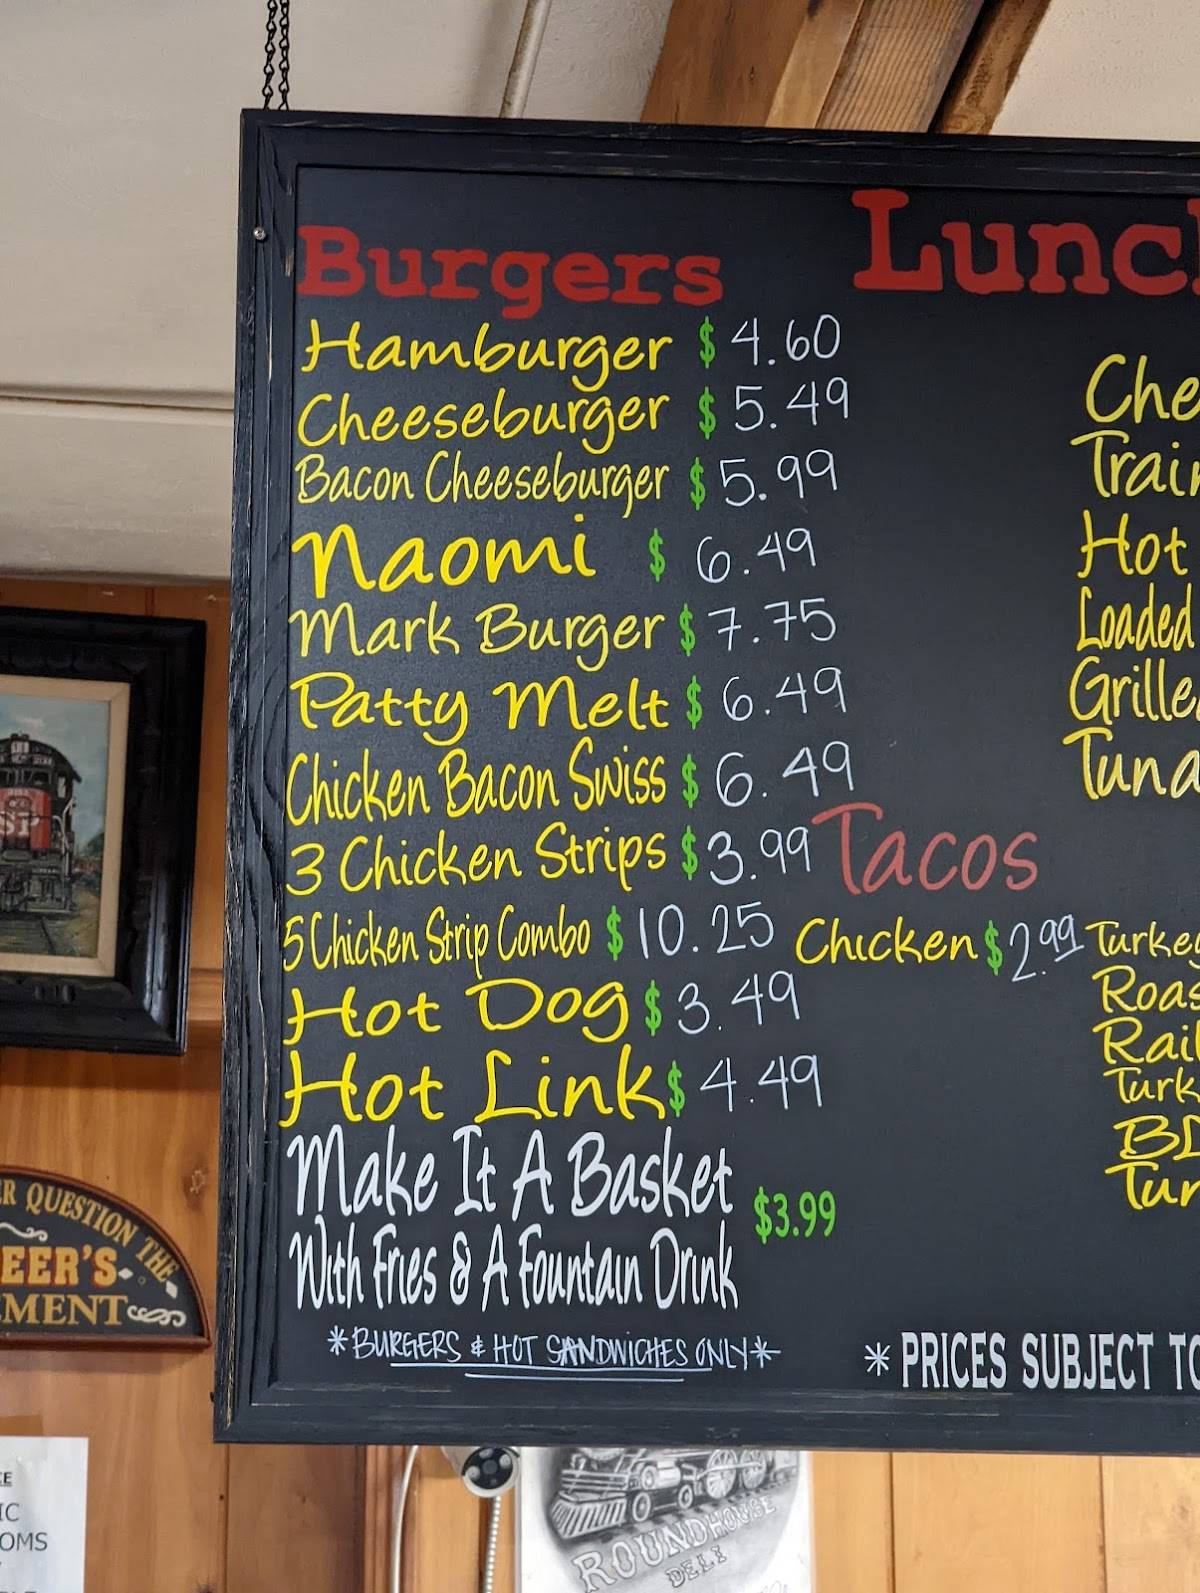 Burgers
Hamburger $ 4.60
Cheeseburger $ 5.49
Bacon Cheeseburger $ 5.99
Naomi $ 6.49
Mark Burger $ 7.75
Patty Melt $ 6.49
Chicken Bacon Swiss $ 6.49
3 Chicken Strips $ 3.99
5 Chicken Strip Combo $ 10.25
Hot Dog $ 3.49
Hot Link $ 4.49
Make It A Basket
With Fries & A Fountain Drink
$3.99
*BURGERS & HOT SANDWICHES ONLY*
Lunch
Che
Train
Hot
Loaded
Grille
Tuna
Tacos
Chicken $ 2.99
Turkey
Roas
Rail
Turk
BL
Tur
* PRICES SUBJECT TO
SP
ER QUESTION THE
EER'S
MENT
CE
IC
OMS
ROUNDHOUSE
DELI